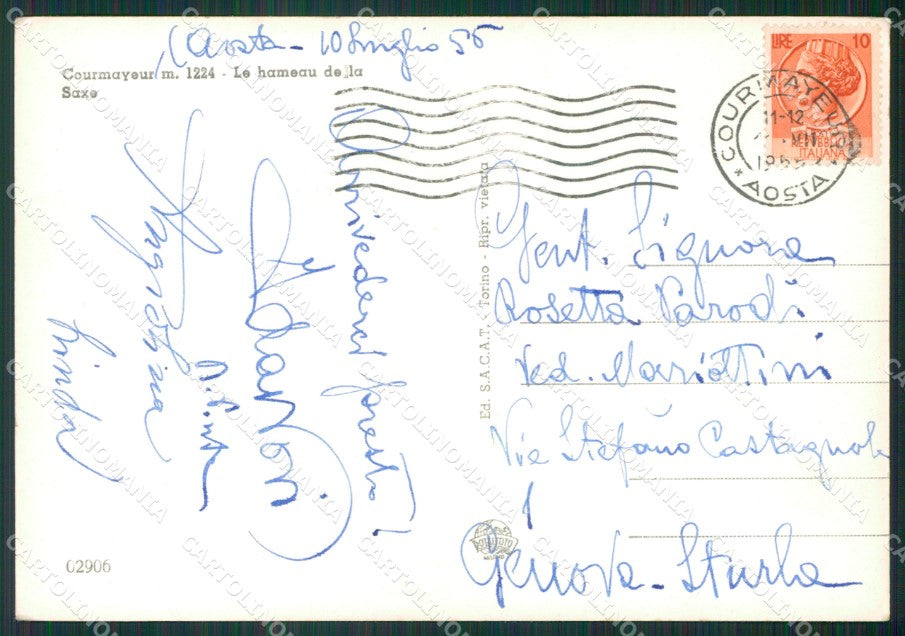 (Aosta - 10 Luglio 55
Courmayeur m. 1224 - Le hameau de la
Saxe
Arrivederci presto!
Ed. S.A.C.A.T. - Torino - Ripr. vietata
LIRE 10
REPUBBLICA
ITALIANA
COURMAYEUR
11-12
1955
* AOSTA *
Gent. Signora
Rosetta Parodi
Ved. Mariottini
Via Stefano Castagnola
1
Genova - Sturla
02906
CARTOLINOMANIA